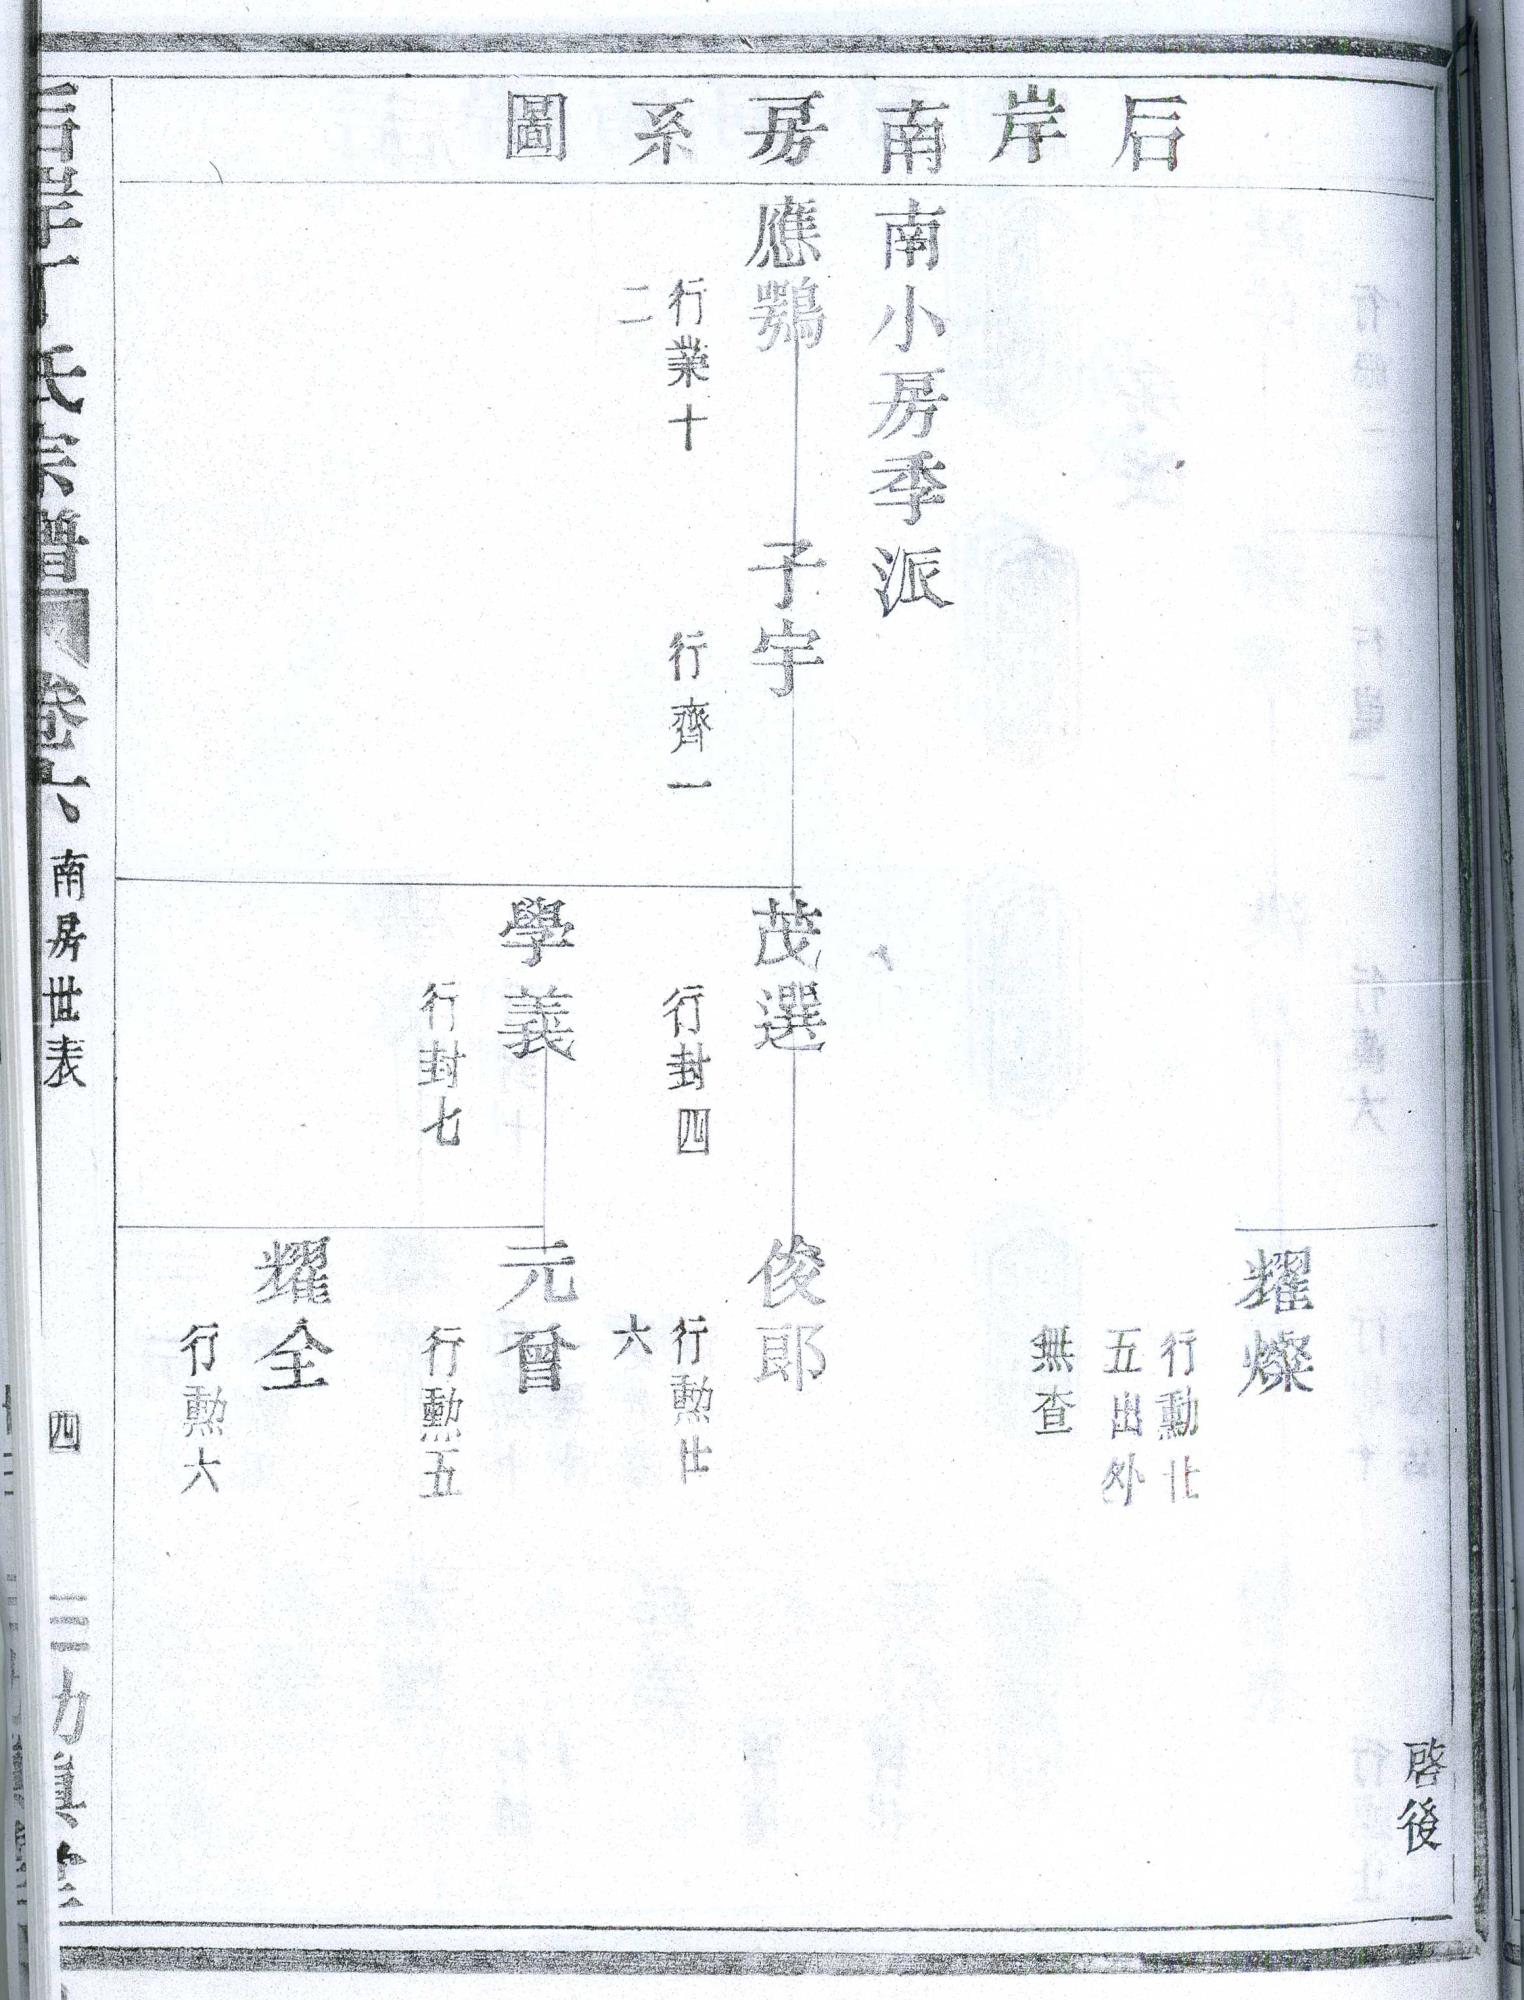 后岸南房系圖
啓後
耀燦
行勳廿
五出外
無查
南小房季派
應鶚
行業十
二
子宇
行齊一
茂選
行封四
俊郎
行勲廿
六
學義
行封七
元曾
行勲五
耀全
行勲六
后岸丁氏宗譜
卷六
南房世表
四